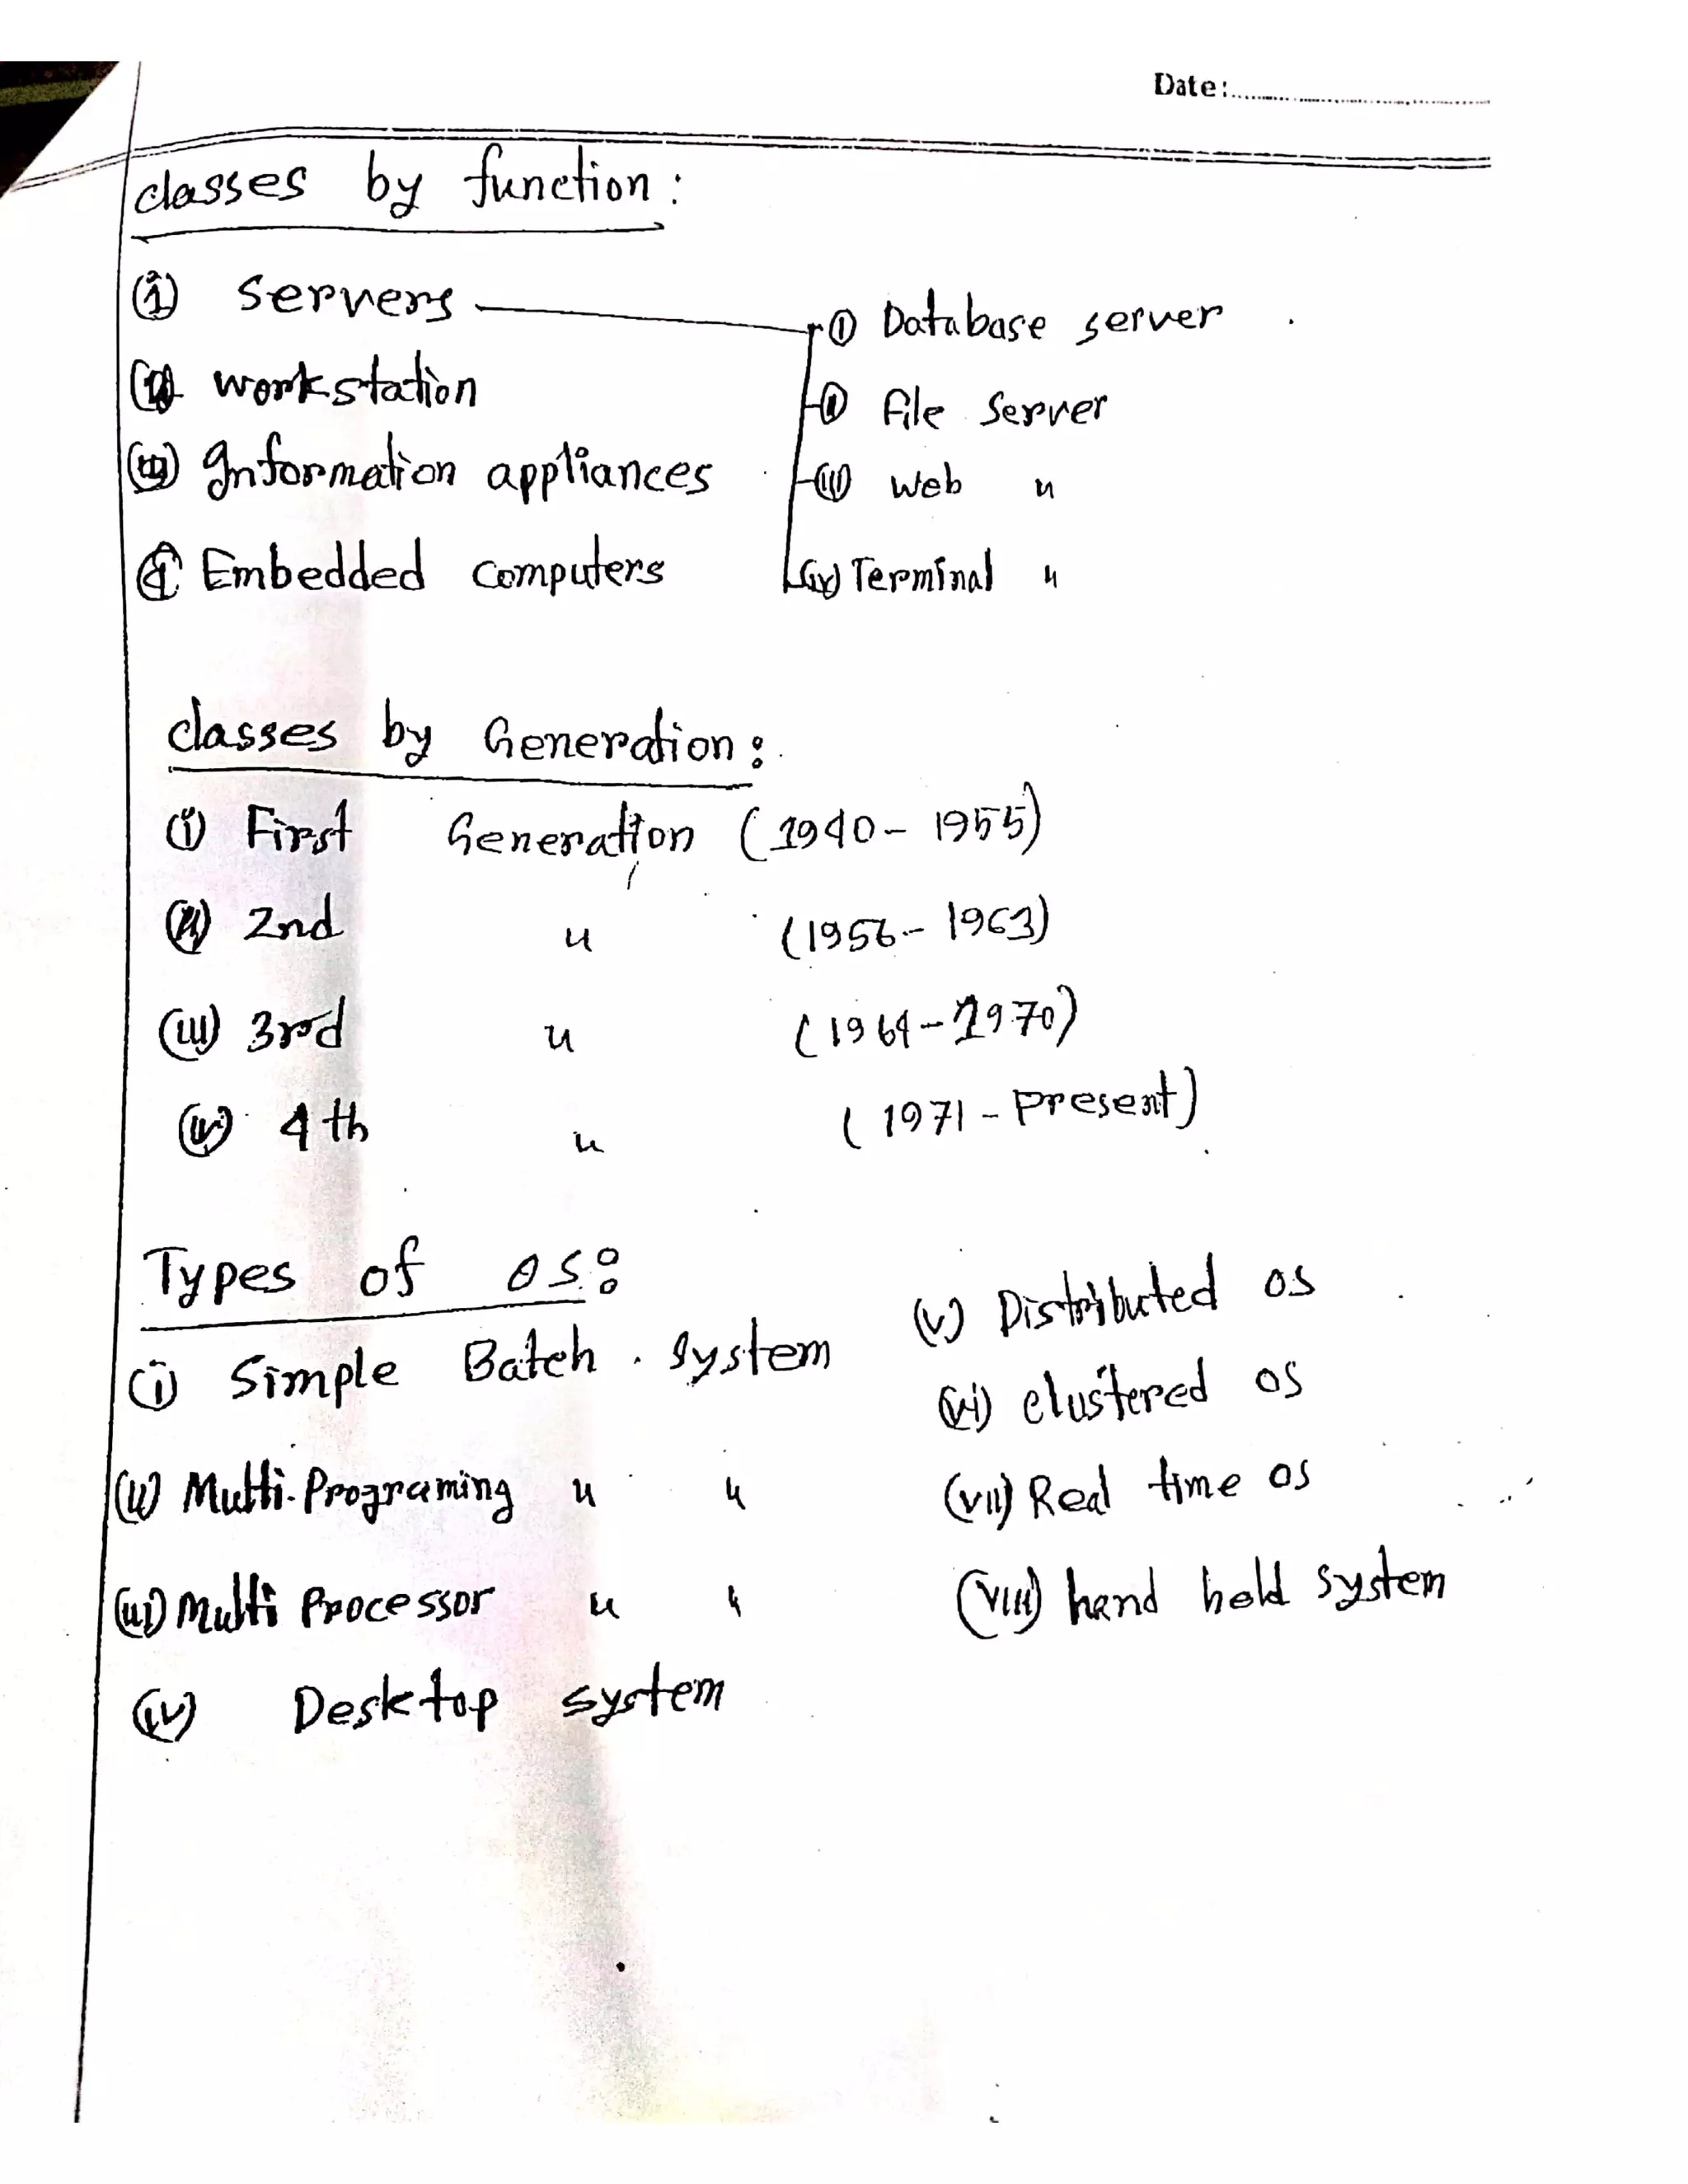 Date:
classes by function:
(i) servers
(ii) workstation
(iii) Information appliances
(iv) Embedded computers
(i) Database server
(ii) File Server
(iii) Web "
(iv) Terminal "
classes by Generation:
(i) First Generation (1940 - 1955)
(ii) 2nd " (1956 - 1963)
(iii) 3rd " (1964 - 1970)
(iv) 4th " (1971 - Present)
Types of OS:
(i) Simple Batch System
(ii) Multi-Programing " "
(iii) Multi Processor " "
(iv) Desktop system
(v) Distributed OS
(vi) clustered OS
(vii) Real time OS
(viii) hand held system